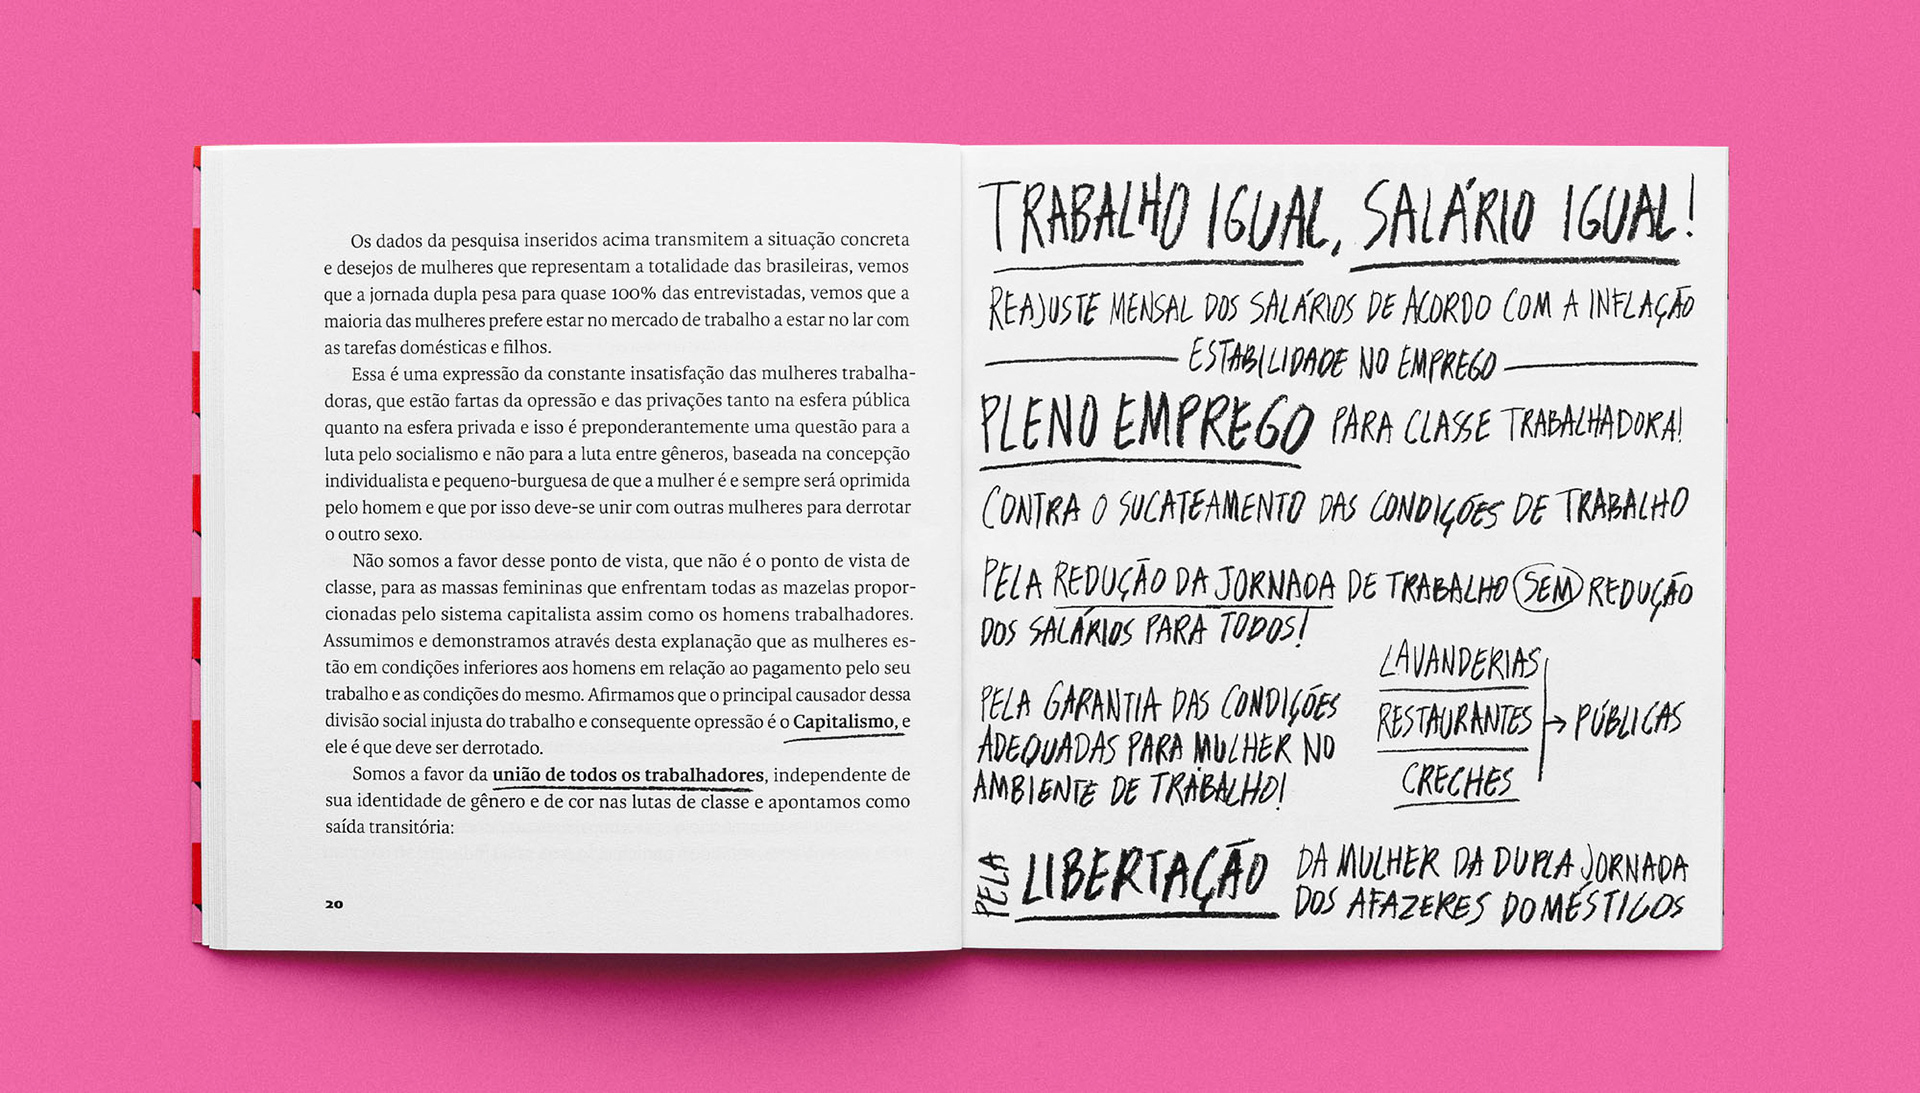 Os dados da pesquisa inseridos acima transmitem a situação concreta
e desejos de mulheres que representam a totalidade das brasileiras, vemos
que a jornada dupla pesa para quase 100% das entrevistadas, vemos que a
maioria das mulheres prefere estar no mercado de trabalho a estar no lar com
as tarefas domésticas e filhos.
Essa é uma expressão da constante insatisfação das mulheres trabalha-
doras, que estão fartas da opressão e das privações tanto na esfera pública
quanto na esfera privada e isso é preponderantemente uma questão para a
luta pelo socialismo e não para a luta entre gêneros, baseada na concepção
individualista e pequeno-burguesa de que a mulher é e sempre será oprimida
pelo homem e que por isso deve-se unir com outras mulheres para derrotar
o outro sexo.
Não somos a favor desse ponto de vista, que não é o ponto de vista de
classe, para as massas femininas que enfrentam todas as mazelas propor-
cionadas pelo sistema capitalista assim como os homens trabalhadores.
Assumimos e demonstramos através desta explanação que as mulheres es-
tão em condições inferiores aos homens em relação ao pagamento pelo seu
trabalho e as condições do mesmo. Afirmamos que o principal causador dessa
divisão social injusta do trabalho e consequente opressão é o Capitalismo, e
ele é que deve ser derrotado.
Somos a favor da união de todos os trabalhadores, independente de
sua identidade de gênero e de cor nas lutas de classe e apontamos como
saída transitória:
20
TRABALHO IGUAL, SALÁRIO IGUAL!
REAJUSTE MENSAL DOS SALÁRIOS DE ACORDO COM A INFLAÇÃO
ESTABILIDADE NO EMPREGO
PLENO EMPREGO PARA CLASSE TRABALHADORA!
CONTRA O SUCATEAMENTO DAS CONDIÇÕES DE TRABALHO
PELA REDUÇÃO DA JORNADA DE TRABALHO SEM REDUÇÃO
DOS SALÁRIOS PARA TODOS!
PELA GARANTIA DAS CONDIÇÕES
ADEQUADAS PARA MULHER NO
AMBIENTE DE TRABALHO!
LAVANDERIAS
RESTAURANTES → PÚBLICAS
CRECHES
PELA LIBERTAÇÃO DA MULHER DA DUPLA JORNADA
DOS AFAZERES DOMÉSTICOS